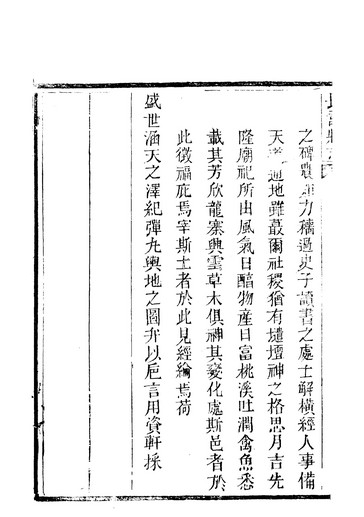 之碑農 力穡過史子讀書之處士解橫經人事備
天 通地雖蕞爾社稷猶有壝壇神之格思月吉先
隆廟祀所由風氣日醇物產日富桃溪吐澗禽魚悉
載其芳欣龍寨興雲草木俱神其變化處斯邑者於
此徵福庇焉宰斯土者於此見經綸焉荷
盛世涵天之澤紀彈丸輿地之圖弁以巵言用資軒採